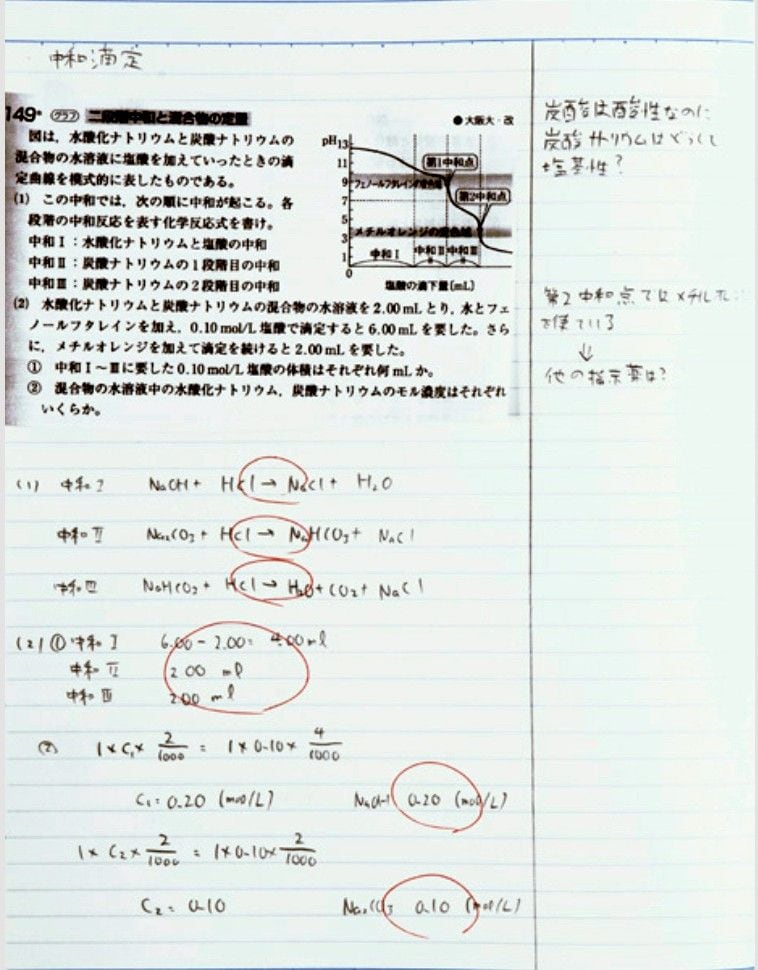 中和滴定
149 グラフ 二段階中和と混合物の定量 ●大阪大・改
図は，水酸化ナトリウムと炭酸ナトリウムの
混合物の水溶液に塩酸を加えていったときの滴
定曲線を模式的に表したものである。
(1) この中和では，次の順に中和が起こる。各
段階の中和反応を表す化学反応式を書け。
中和Ⅰ：水酸化ナトリウムと塩酸の中和
中和Ⅱ：炭酸ナトリウムの1段階目の中和
中和Ⅲ：炭酸ナトリウムの2段階目の中和
pH 13
11
9
7
5
3
1
0
第1中和点
フェノールフタレインの変色域
第2中和点
メチルオレンジの変色域
中和Ⅰ 中和Ⅱ 中和Ⅲ
塩酸の滴下量〔mL〕
(2) 水酸化ナトリウムと炭酸ナトリウムの混合物の水溶液を2.00mLとり，水とフェ
ノールフタレインを加え，0.10mol/L塩酸で滴定すると6.00mLを要した。さら
に，メチルオレンジを加えて滴定を続けると2.00mLを要した。
① 中和Ⅰ～Ⅲに要した0.10mol/L塩酸の体積はそれぞれ何mLか。
② 混合物の水溶液中の水酸化ナトリウム，炭酸ナトリウムのモル濃度はそれぞれ
いくらか。
(1) 中和Ⅰ NaOH + HCl → NaCl + H2O
中和Ⅱ Na2CO3 + HCl → NaHCO3 + NaCl
中和Ⅲ NaHCO3 + HCl → H2O + CO2 + NaCl
(2) ① 中和Ⅰ 6.00 - 2.00 = 4.00 ml
中和Ⅱ 2.00 ml
中和Ⅲ 2.00 ml
② 1 × C1 × 2/1000 = 1 × 0.10 × 4/1000
C1 = 0.20 (mol/L) NaOH 0.20 (mol/L)
1 × C2 × 2/1000 = 1 × 0.10 × 2/1000
C2 = 0.10 Na2CO3 0.10 (mol/L)
炭酸は酸性なのに
炭酸ナトリウムはどうして
塩基性？
第2中和点ではメチルオレンジ
を使ている
↓
他の指示薬は？